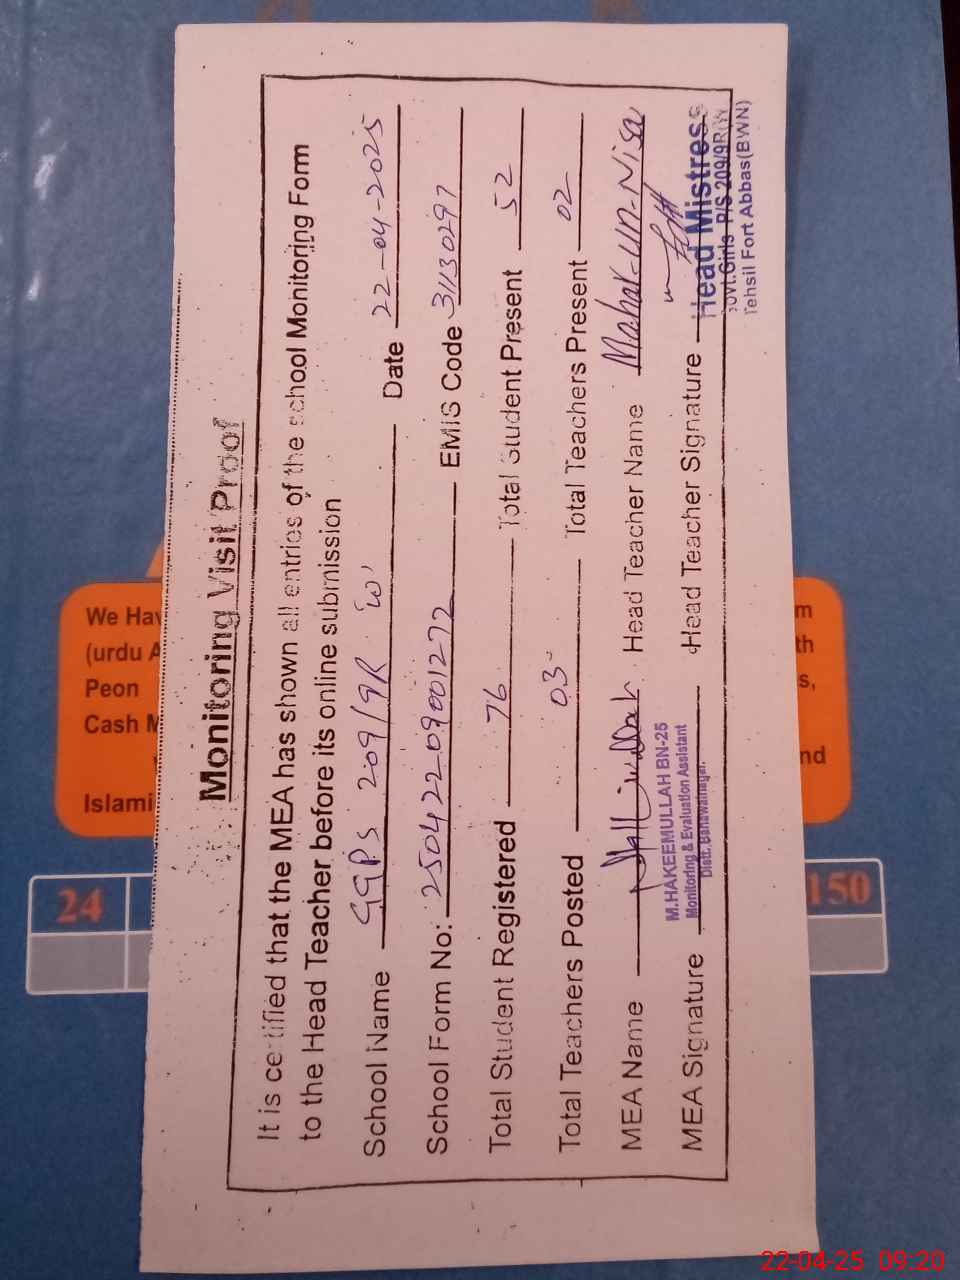 Monitoring Visit Proof
It is certified that the MEA has shown all entries of the school Monitoring Form
to the Head Teacher before its online submission
School Name GGPS 209/9R W Date 22-04-2025
School Form No: EMIS Code 31130297
Total Student Registered 76 Total Student Present 52
Total Teachers Posted 03 Total Teachers Present 02
MEA Name Head Teacher Name Mahak-un-Nisa
M.HAKEEMULLAH BN-25
Monitoring & Evaluation Assistant
Distt. Bahawalnagar.
MEA Signature Head Teacher Signature
Head Mistress
Govt.Girls P/S 209/9R(W
Tehsil Fort Abbas(BWN)
We Hav
(urdu A
Peon
Cash M
Islami
m
th
s,
nd
24
150
22-04-25 09:20